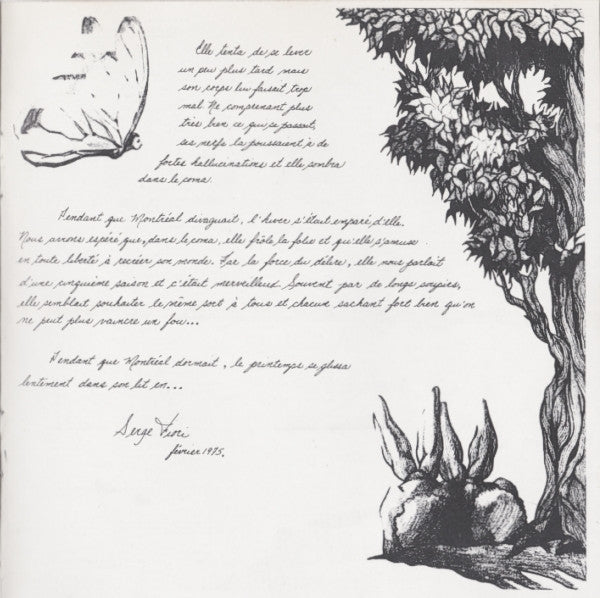 Elle tenta de se lever
un peu plus tard mais
son corps lui faisait trop
mal. Ne comprenant plus
très bien ce qui se passait,
ses nerfs la poussaient à de
fortes hallucinations et elle sombra
dans le coma.
Pendant que Montréal divaguait, l'hiver s'était emparé d'elle.
Nous avons espéré que, dans le coma, elle frôle la folie et qu'elle s'amuse
en toute liberté à recréer son monde. Par la force du délire, elle nous parlait
d'une cinquième saison et c'était merveilleux. Souvent par de longs soupirs,
elle semblait souhaiter le même sort à tous et chacun sachant fort bien qu'on
ne peut plus vaincre un fou...
Pendant que Montréal dormait, le printemps se glissa
lentement dans son lit en...
Serge Fiori
février 1975.